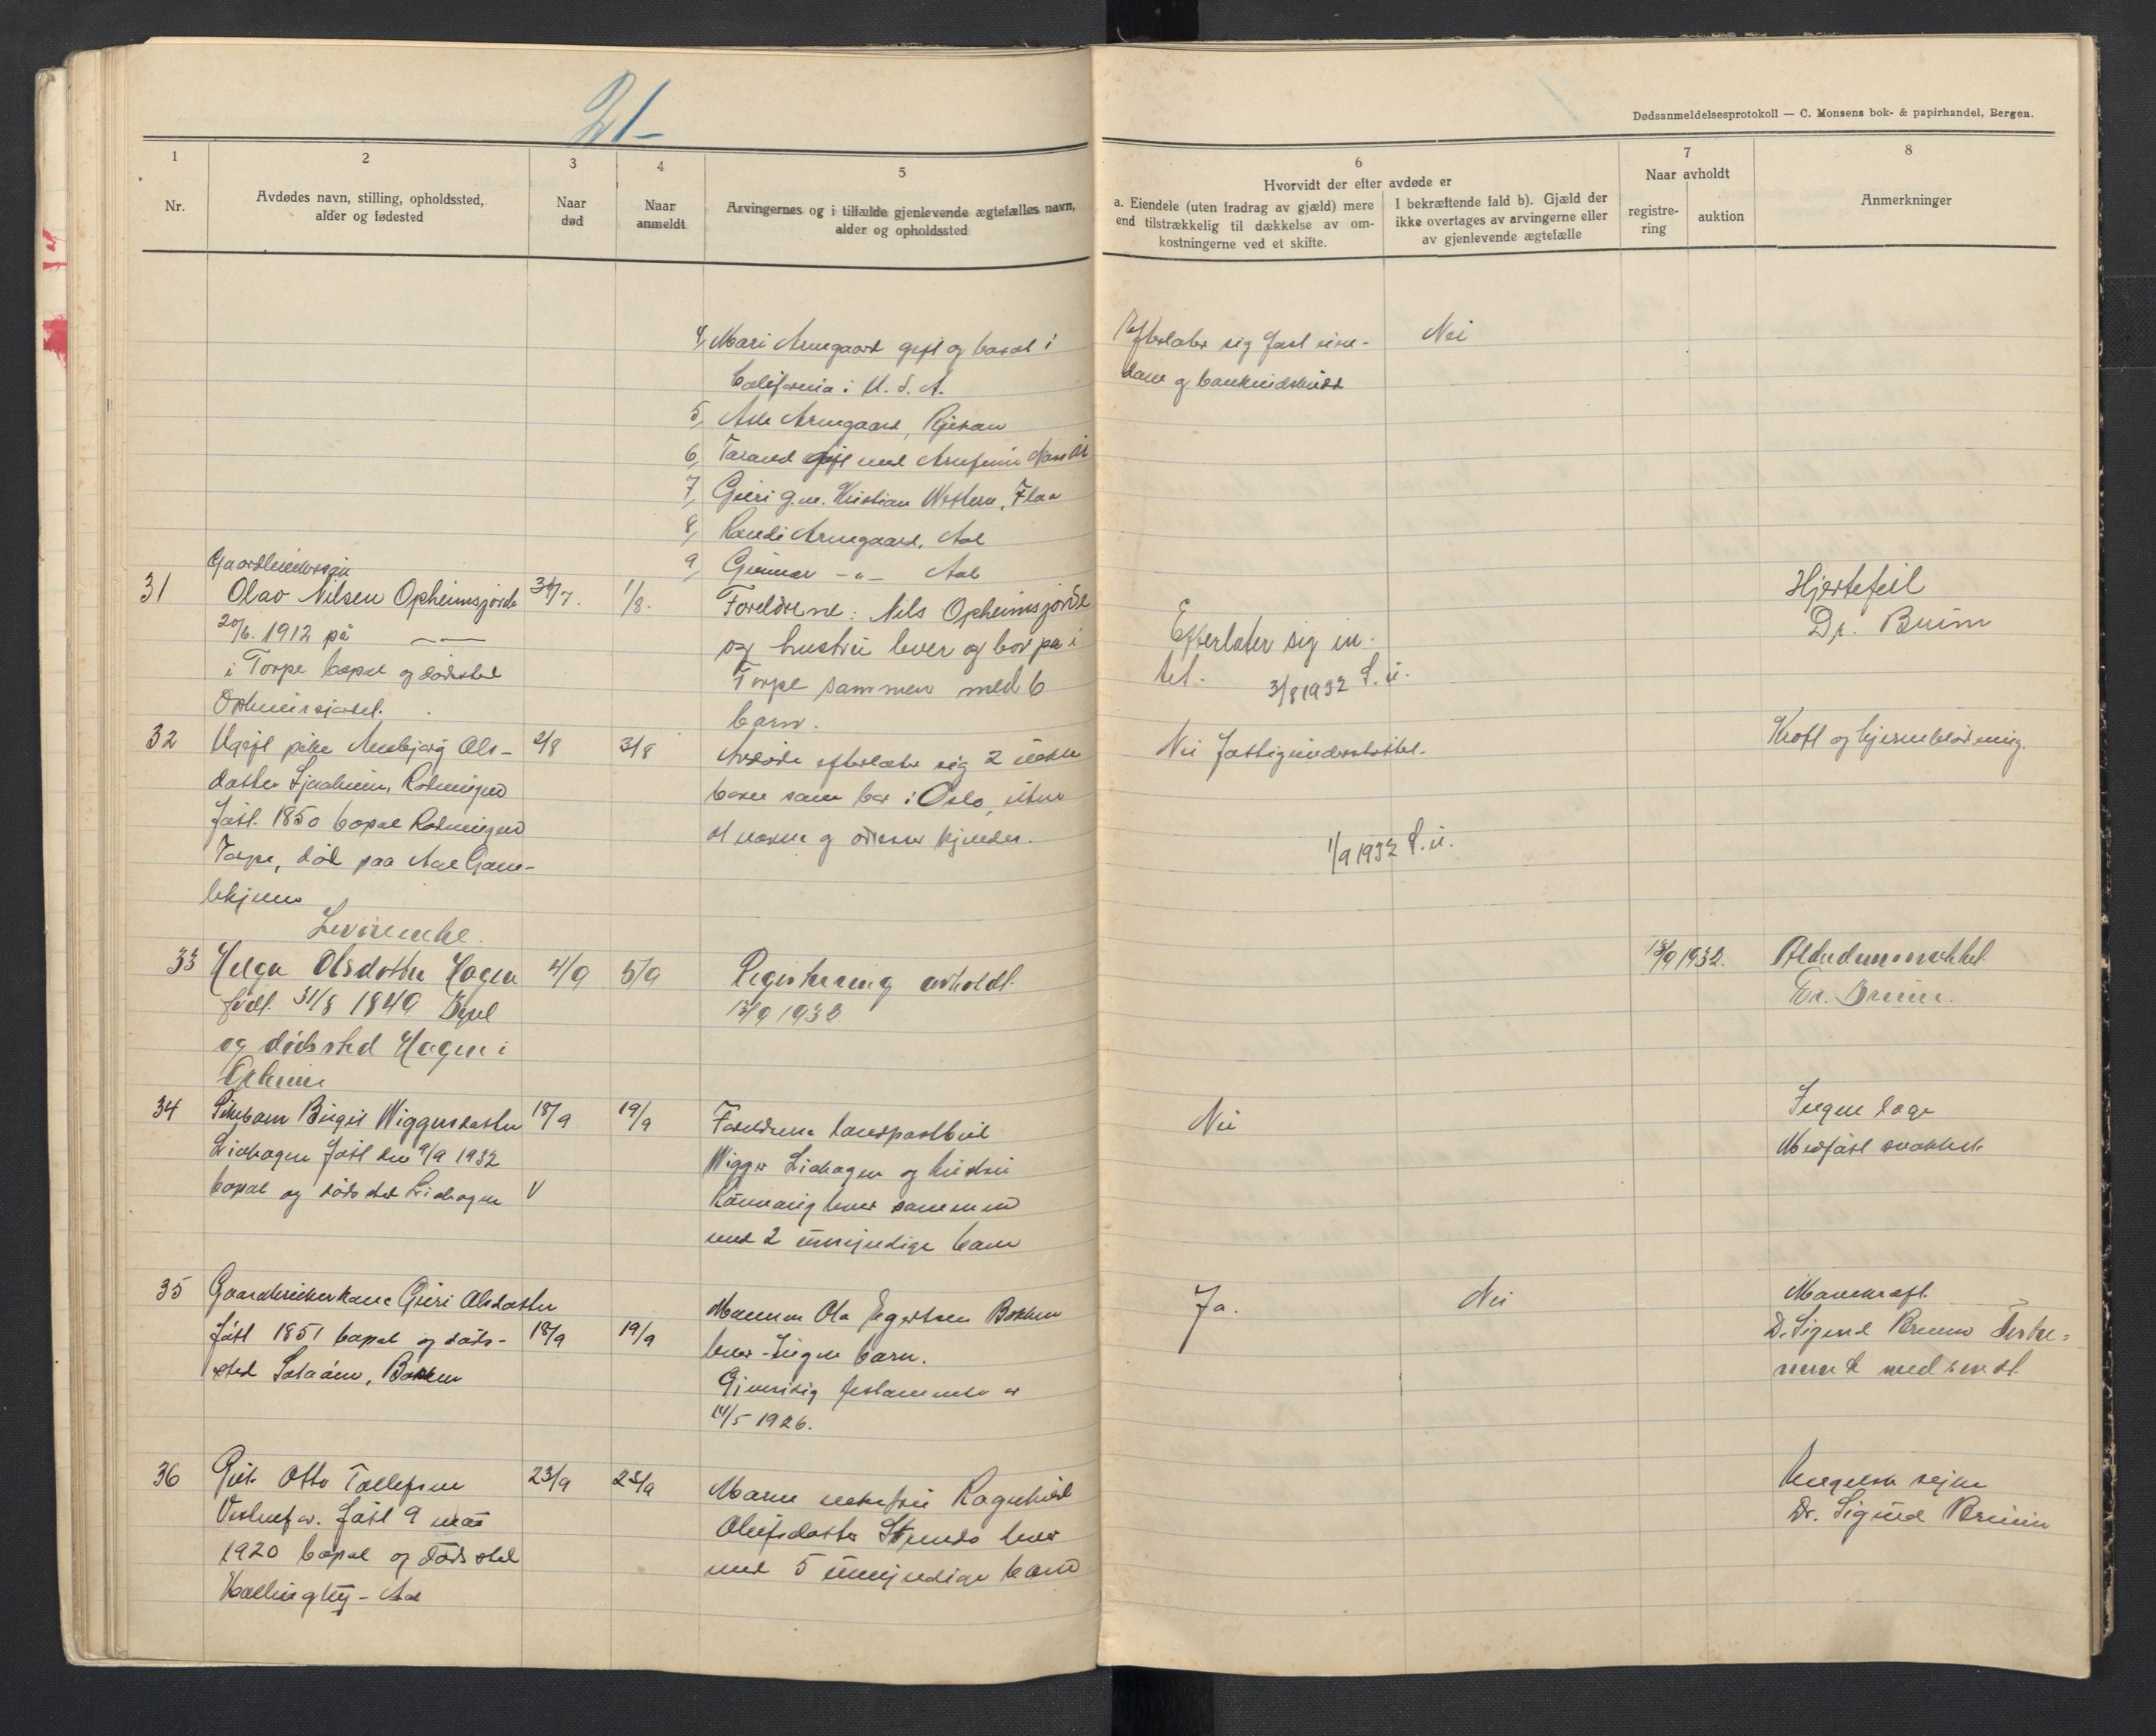 21-
Dødsanmeldelsesprotokoll — C. Monsens bok- & papirhandel, Bergen.
1
2
3
4
5
6
7
8
Nr.
Avdødes navn, stilling, opholdssted,
alder og fødested
Naar
død
Naar
anmeldt
Arvingernes og i tilfælde gjenlevende ægtefælles navn,
alder og opholdssted
Hvorvidt der efter avdøde er
a. Eiendele (uten fradrag av gjæld) mere
end tilstrækkelig til dækkelse av om-
kostningerne ved et skifte.
I bekræftende fald b). Gjæld der
ikke overtages av arvingerne eller
av gjenlevende ægtefælle
Naar avholdt
registre-
ring
auktion
Anmerkninger
4, Mari Arnegaard gift og bosat i
California i U.S.A.
5, Arnegaard, Rjukan
6, gift med
7, Guri g.m. Kristian , Flaa
8, Randi Arnegaard, Aal
9, Gunnar -"- Aal
Efterlater sig fast eien-
dom og bankindskudd
Nei
31
Olav Nilsen Opheimsjorde
20/6. 1912 på
i Torpe bopæl og dødssted
31/7.
1/8.
Foreldrene: Nils Opheimsjorde
og hustru lever og bor på i
Torpe sammen med 6
barn.
Efterlater sig in-
tet. 3/8 1932 S.u.
Hjertefeil
Dr. Bruun
32
Ugift pike Ols-
datter
født 1850 bopæl
Torpe, død paa Aal Gam-
lehjem
2/8
3/8
Avdøde efterlater sig 2 uekte
barn som bor i Oslo, uten
at navne og adresser kjendes.
Nei fattigunderstøttet.
1/9 1932 S.u.
Kreft og hjerneblødning.
33
Helga Olsdatter Hagen
født 31/8 1849
og dødssted Hagen i
4/9
5/9
Registrering avholdt
13/9 1932
13/9 1932.
Alderdomssvekkelse
Dr. Bruun.
34
Pikebarn Birgit Wiggersdatter
Liahagen født den 9/9 1932
bopæl og dødssted Liahagen
18/9
V
19/9
Foreldrene landpostbud
Wigger Liahagen og hustru
lever sammen
med 2 umyndige barn
Nei
Ingen læge
Medfødt svakhet
35
Gaardbrukerkone Guri Olsdatter
født 1851 bopæl og døds-
sted
18/9
19/9
Mannen Ola
lever - Ingen barn.
Gjensidig testamente av
14/5 1926.
Ja.
Nei
Mavekræft
Dr. Sigurd Bruun Testa-
mente medsendt
36
Gut Otto Tollefsen
født 9 mai
1920 bopæl og dødssted
- Aal
23/9
23/9
Moren enkefru Ragnhild
Olufsdatter lever
med 5 umyndige barn
Engelsk syke
Dr. Sigurd Bruun